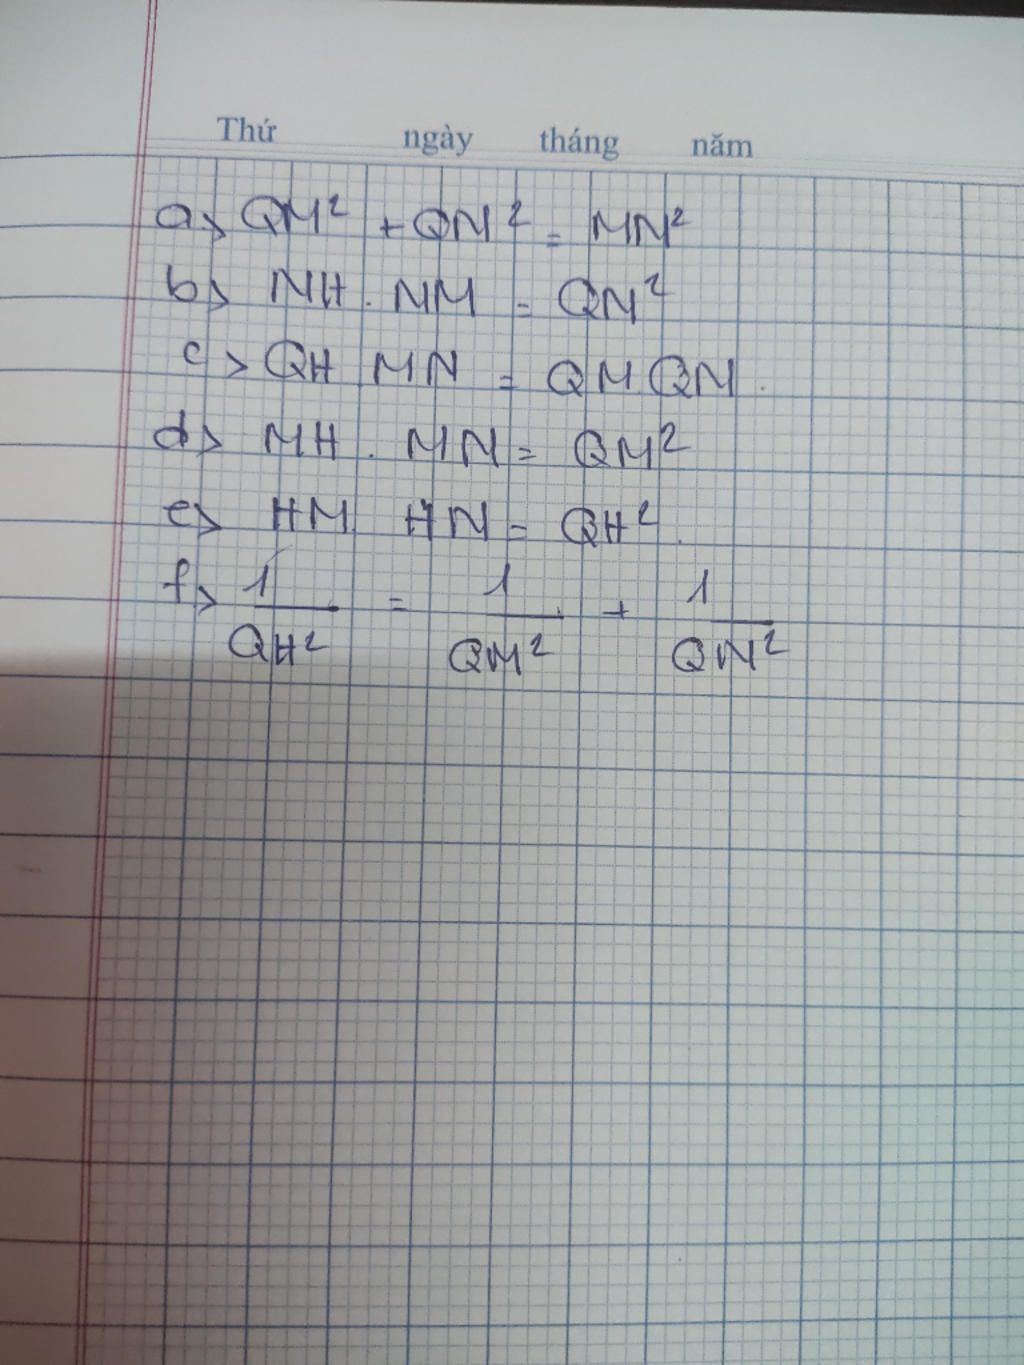 Thứ ngày tháng năm
a> QM² + QN² = MN²
b> NH . NM = QN²
c> QH MN = QM QN .
d> MH . MN = QM²
e> HM HN = QH² .
f> 1/QH² = 1/QM² + 1/QN²